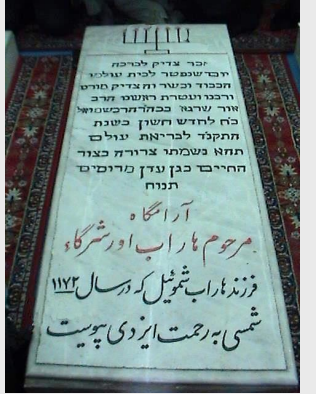 זכר צדיק לברכה
יום שנפטר לבית עולמו
הכבוד וכשר והצדיק מורינו
ורבנו ועטרת ראשנו הרב
אור שרגא בכהרהר שמואל
כ״ח לחדש חשון בשנת
התקנד לבריאת עולם
תהא נשמתו צרורה בצור
החיים בגן עדן מרומים
תנוח
آرامگاه
مرحوم هاراب اورشرگاء
فرزند هاراب شموئیل که در سال ۱۱۷۲
شمسی به رحمت ایزدی پیوست